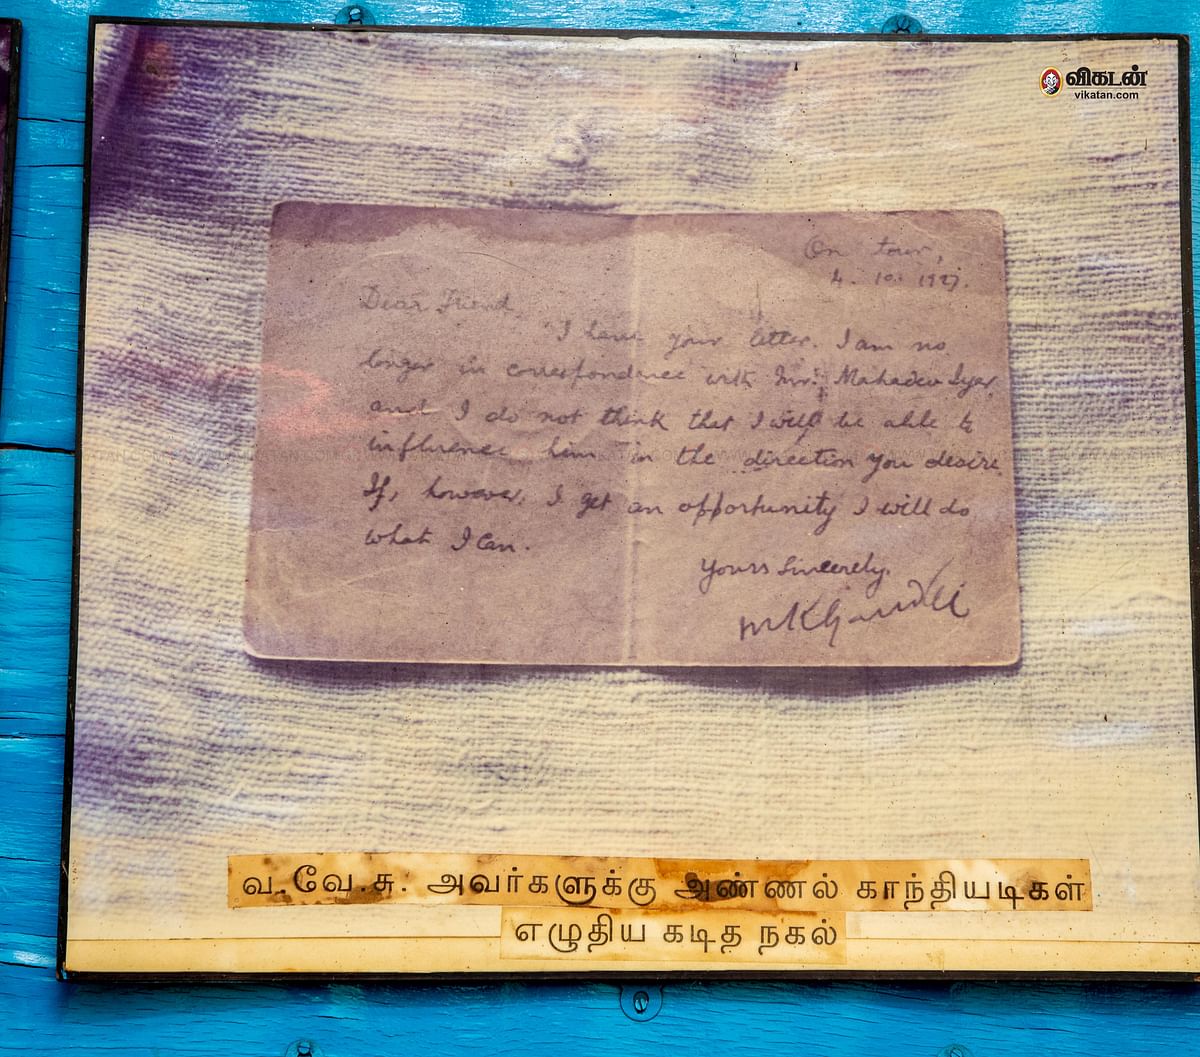 விகடன்
vikatan.com
On tour,
4. 10. 1927.
Dear Friend
I have your letter. I am no
longer in correspondence with Mr. Mahadev Iyer
and I do not think that I will be able to
influence him in the direction you desire.
If, however, I get an opportunity I will do
what I can.
Yours Sincerely,
MKGandhi
வ.வே.சு. அவர்களுக்கு அண்ணல் காந்தியடிகள்
எழுதிய கடித நகல்